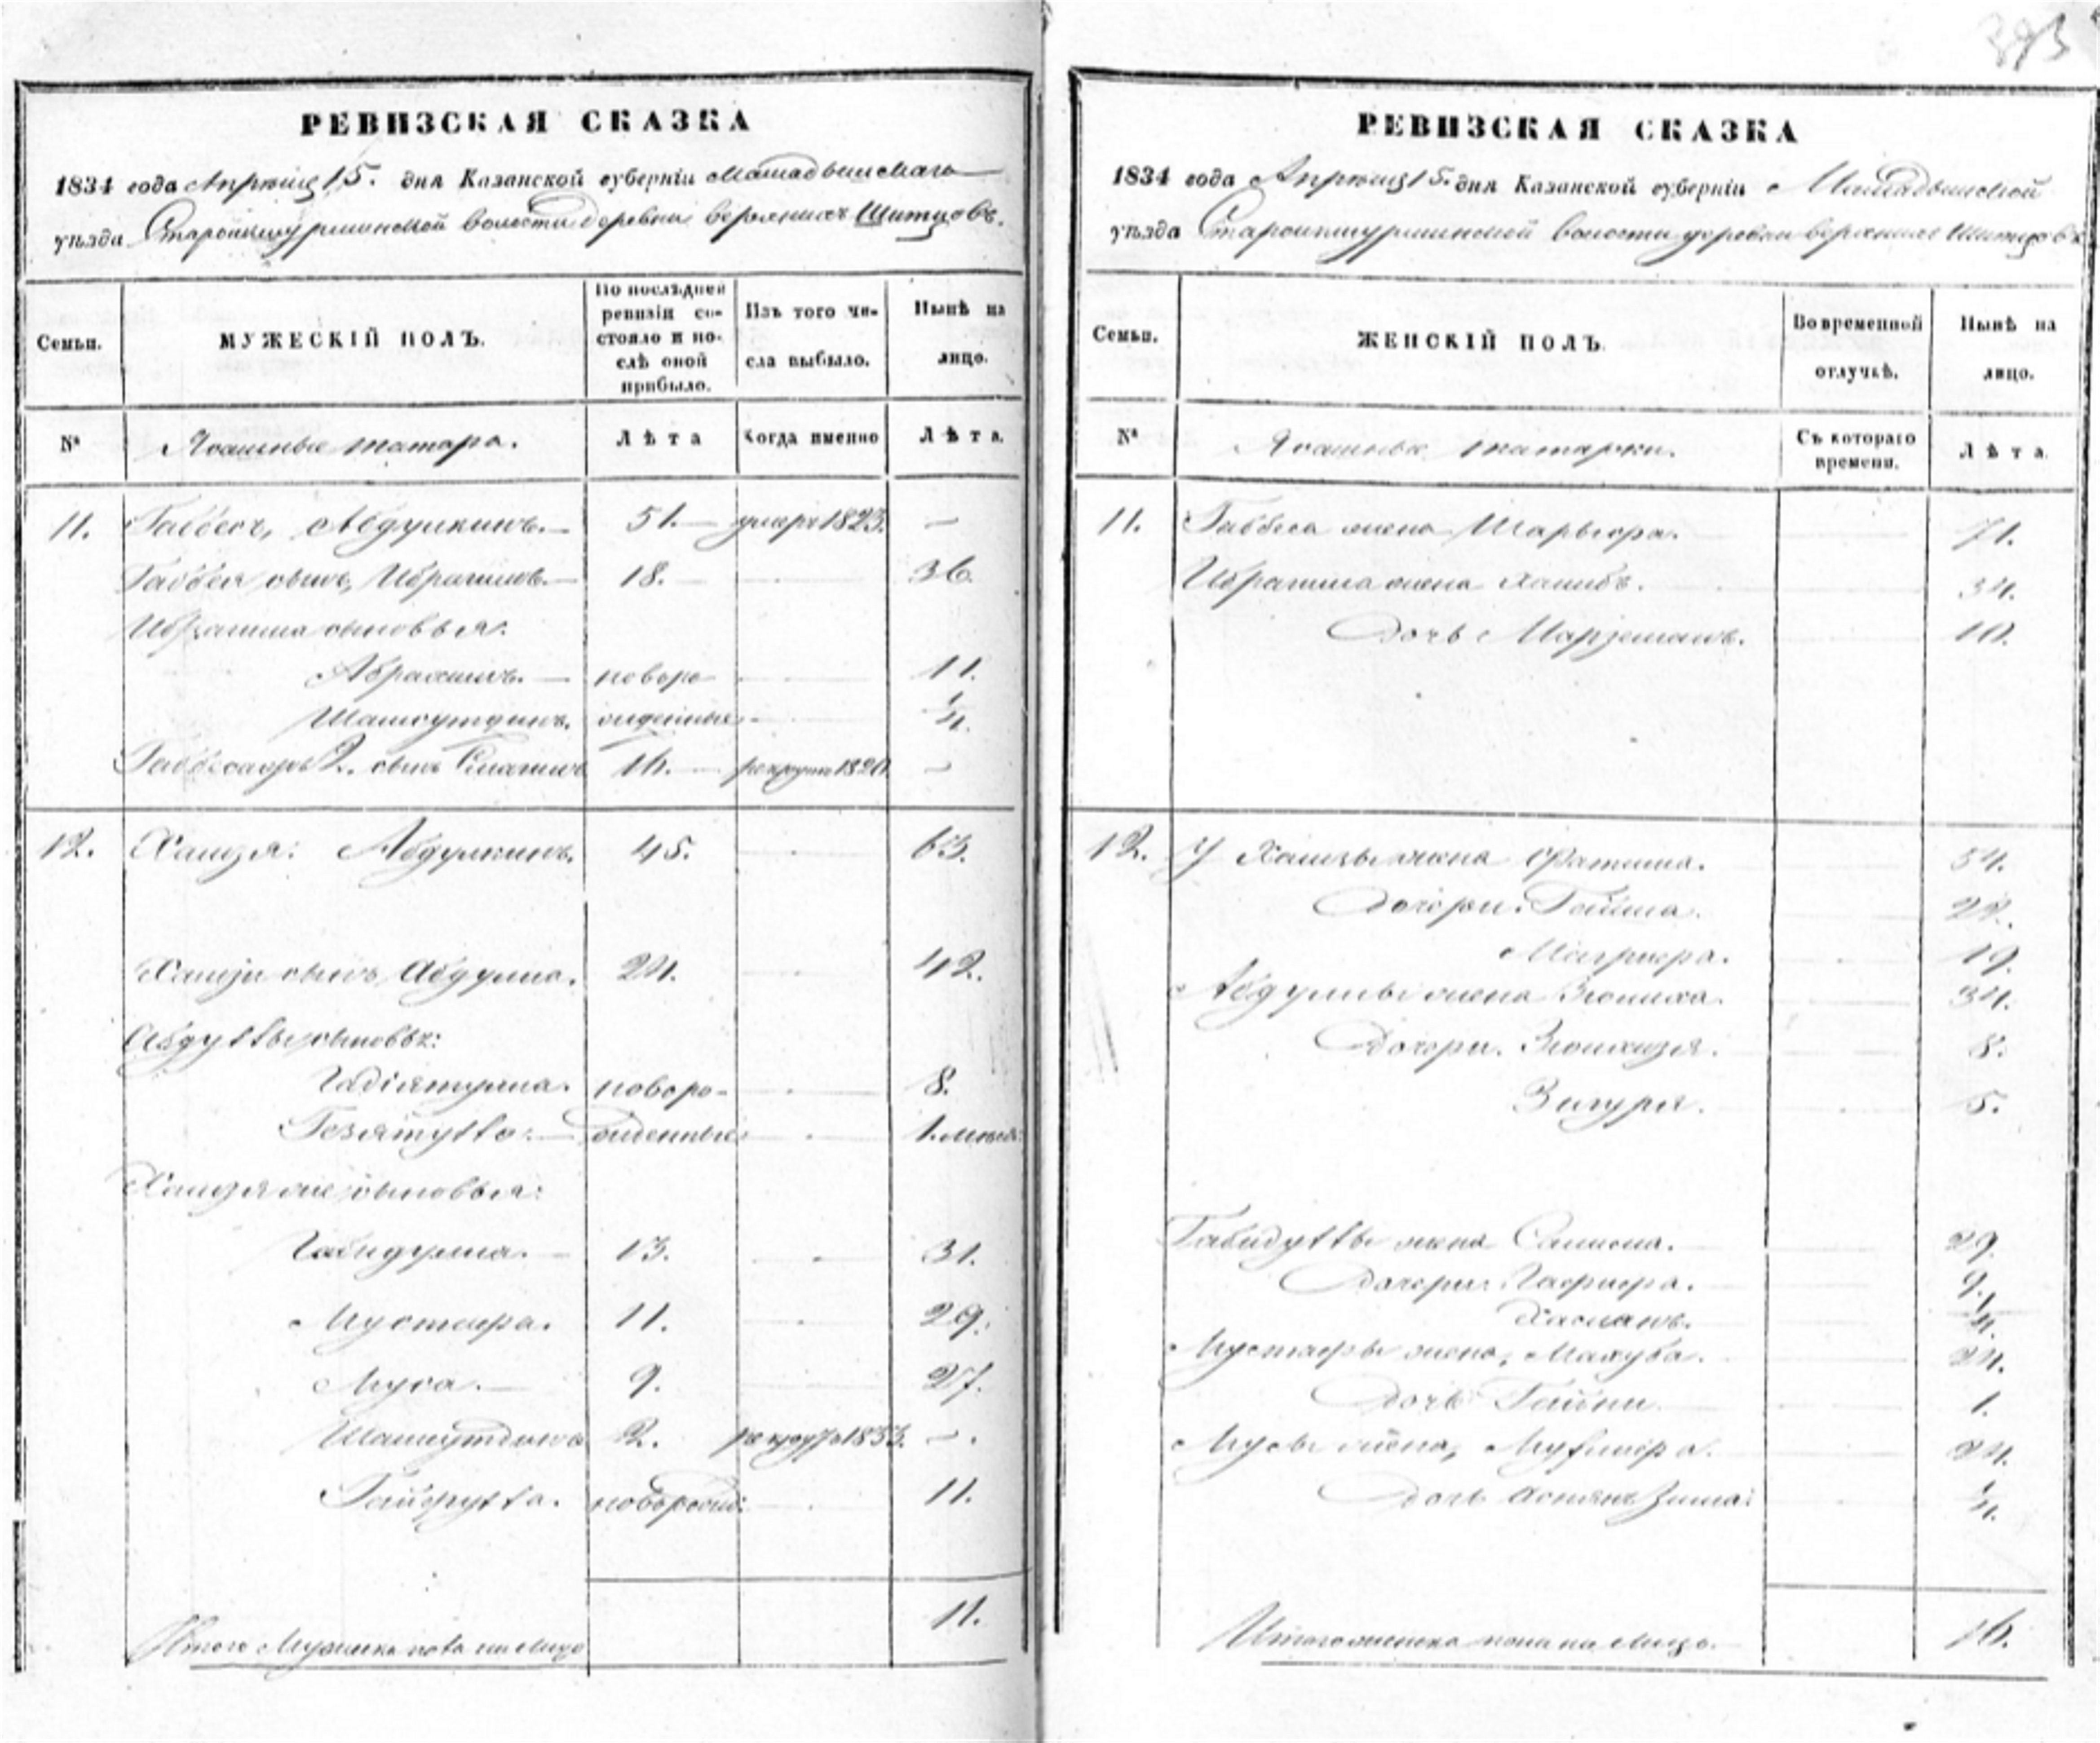 393
РЕВИЗСКАЯ СКАЗКА
1834 года Апреля 15. дня Казанской губерніи Мамадышскаго
уѣзда Староикшурминской волости деревни верхнихъ Шитцовъ.
Семьи.
МУЖЕСКІЙ ПОЛЪ.
По послѣдней ревизіи состояло и послѣ оной прибыло.
Изъ того числа выбыло.
Нынѣ на лицо.
№
Ясашные татара.
Лѣта
Когда именно
Лѣта.
11. Габбасъ, Абдулкинъ. 51. умеръ 1823. —
Габбаса сынъ, Ибрагимъ. 18. 36.
Ибрагима сыновья:
Абрахимъ. новоро- 11.
Шамсутдинъ. жденные 1/4.
2. сынъ 16. рекрутъ 1820 —
12. Хамзя: Абдулкинъ. 45. 63.
Хамзи сынъ Абдулла. 24. 42.
Абдуллы сыновья:
Гадіятулла. новоро- 8.
Гезятулла. жденные 1.
Хамзя же сыновья:
Габидулла. 13. 31.
Мустафа. 11. 29.
Муса. 9. 27.
Шамсутдинъ 2. рекрутъ 1833. —.
Гайфулла. новорожд: 11.
11.
Итого Мужеска пола на лицо
РЕВИЗСКАЯ СКАЗКА
1834 года Апреля 15. дня Казанской губерніи Мамадышской
уѣзда Староикшурминской волости деревни верхнихъ Шитцовъ
Семьи.
ЖЕНСКІЙ ПОЛЪ.
Во временной отлучкѣ.
Нынѣ на лицо.
№
Ясашныя татарки.
Съ котораго времени.
Лѣта
11. Габбаса жена Шарифа. 71.
Ибрагима жена Хамибъ. 34.
Дочь Марземанъ. 10.
12. У Хамзы жена Фатима. 54.
Дочери: Гайша. 22.
Магруфа. 19.
Абдуллы жена Зюлиха. 34.
Дочери. 8.
Зигуря. 5.
Габидуллы жена Салима. 29.
Дочери: Гафифа. 9.
1/4.
Мустафы жена, Махуба. 24.
Дочь Гайни 1.
Мусы жена, 24.
Дочь 1/4.
Итого женска пола на лицо. 16.